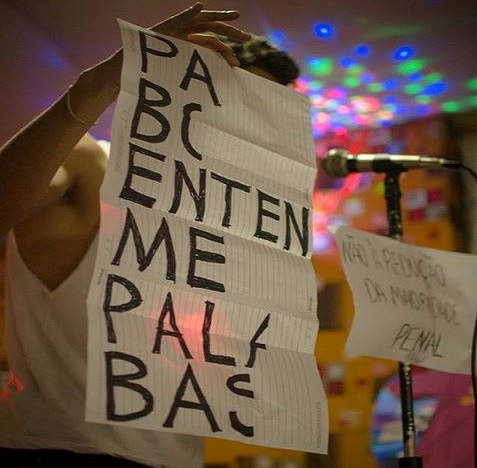 PA
BC
ENTEN
ME
PALA
BAS
NÃO À REDUÇÃO
DA MAIORIDADE
PENAL